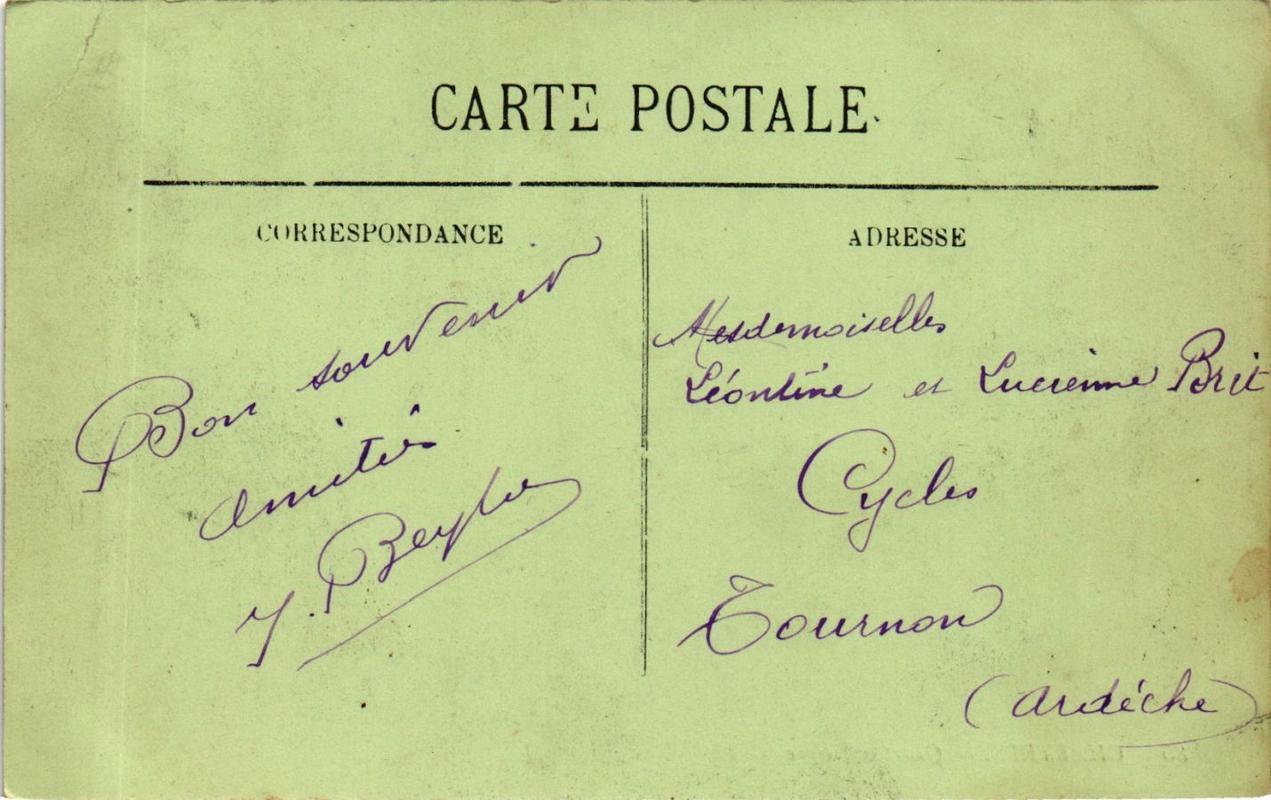 CARTE POSTALE
CORRESPONDANCE
Bon souvenir
amitiés
J. Beyle
ADRESSE
Mesdemoiselles
Léontine et Lucienne Brit
Cycles
Tournon
(Ardèche)